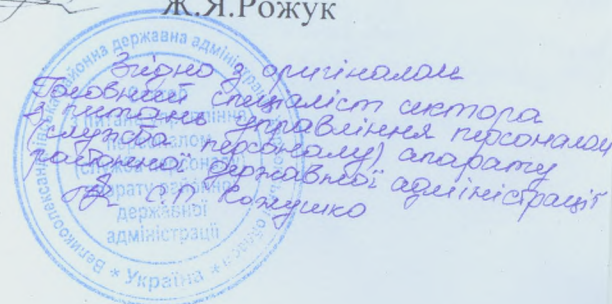 Ж.Я.Рожук
Згідно з оригіналом
Головний спеціаліст сектора
з питань управління персоналом
(служба персоналу) апарату
районної державної адміністрації
С.П. Кожушко
районна державна адміністрація
державної
адміністрації
* Україна *